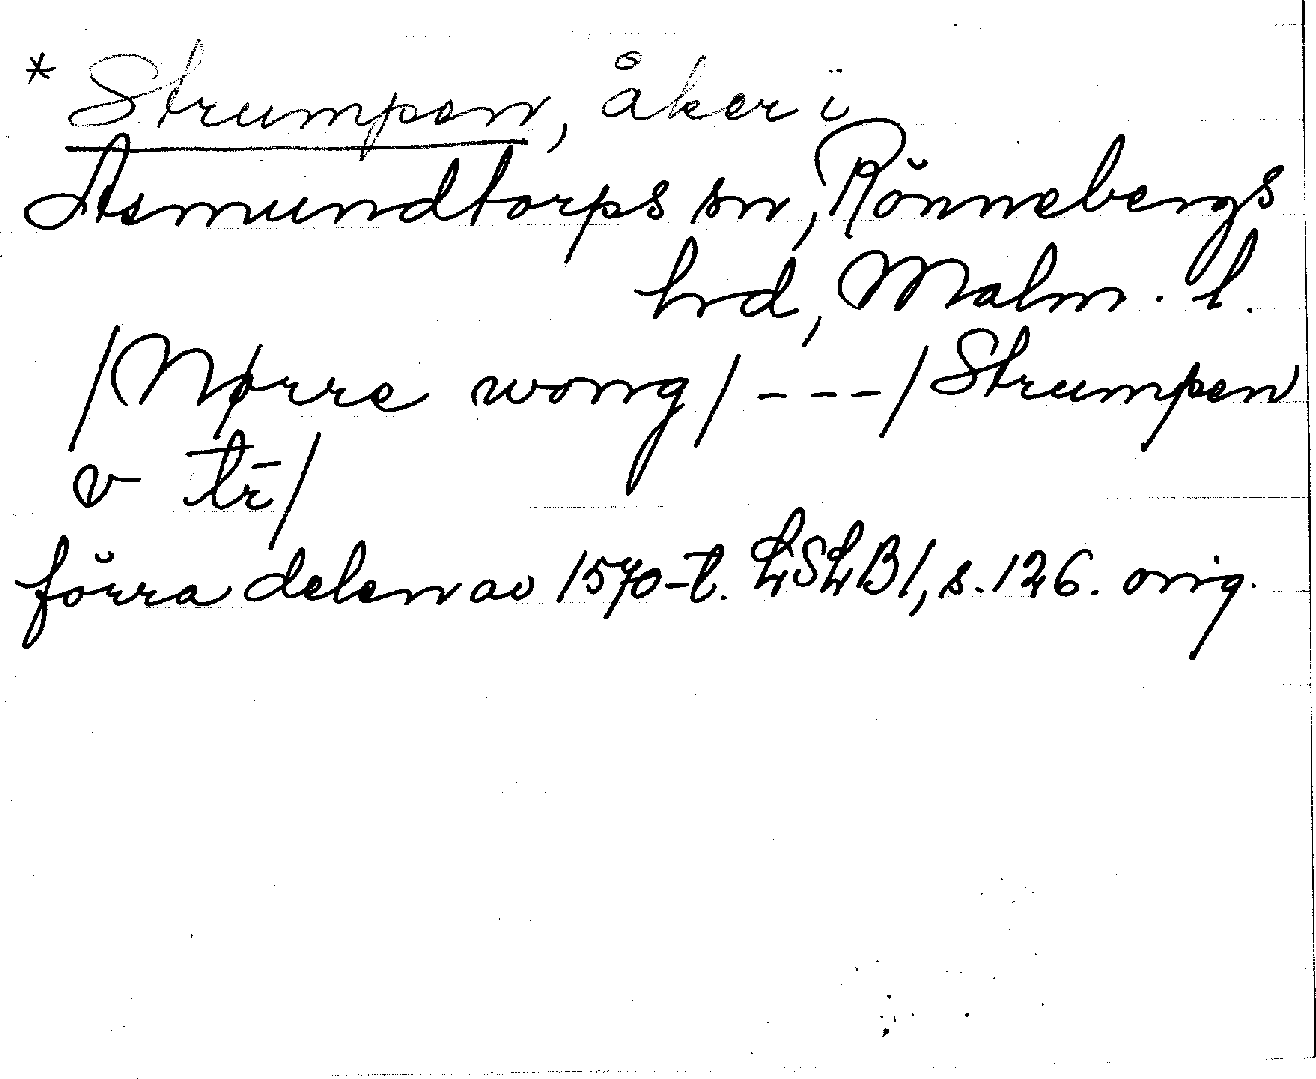 * Strumpen, åker i
Asmundtorps sn, Rönnebergs
hrd, Malm. l.
/Nørre wong/ - - - /Strumpen
v tr̄/
förra delen av 1570-t. LSLB1, s. 126. orig.